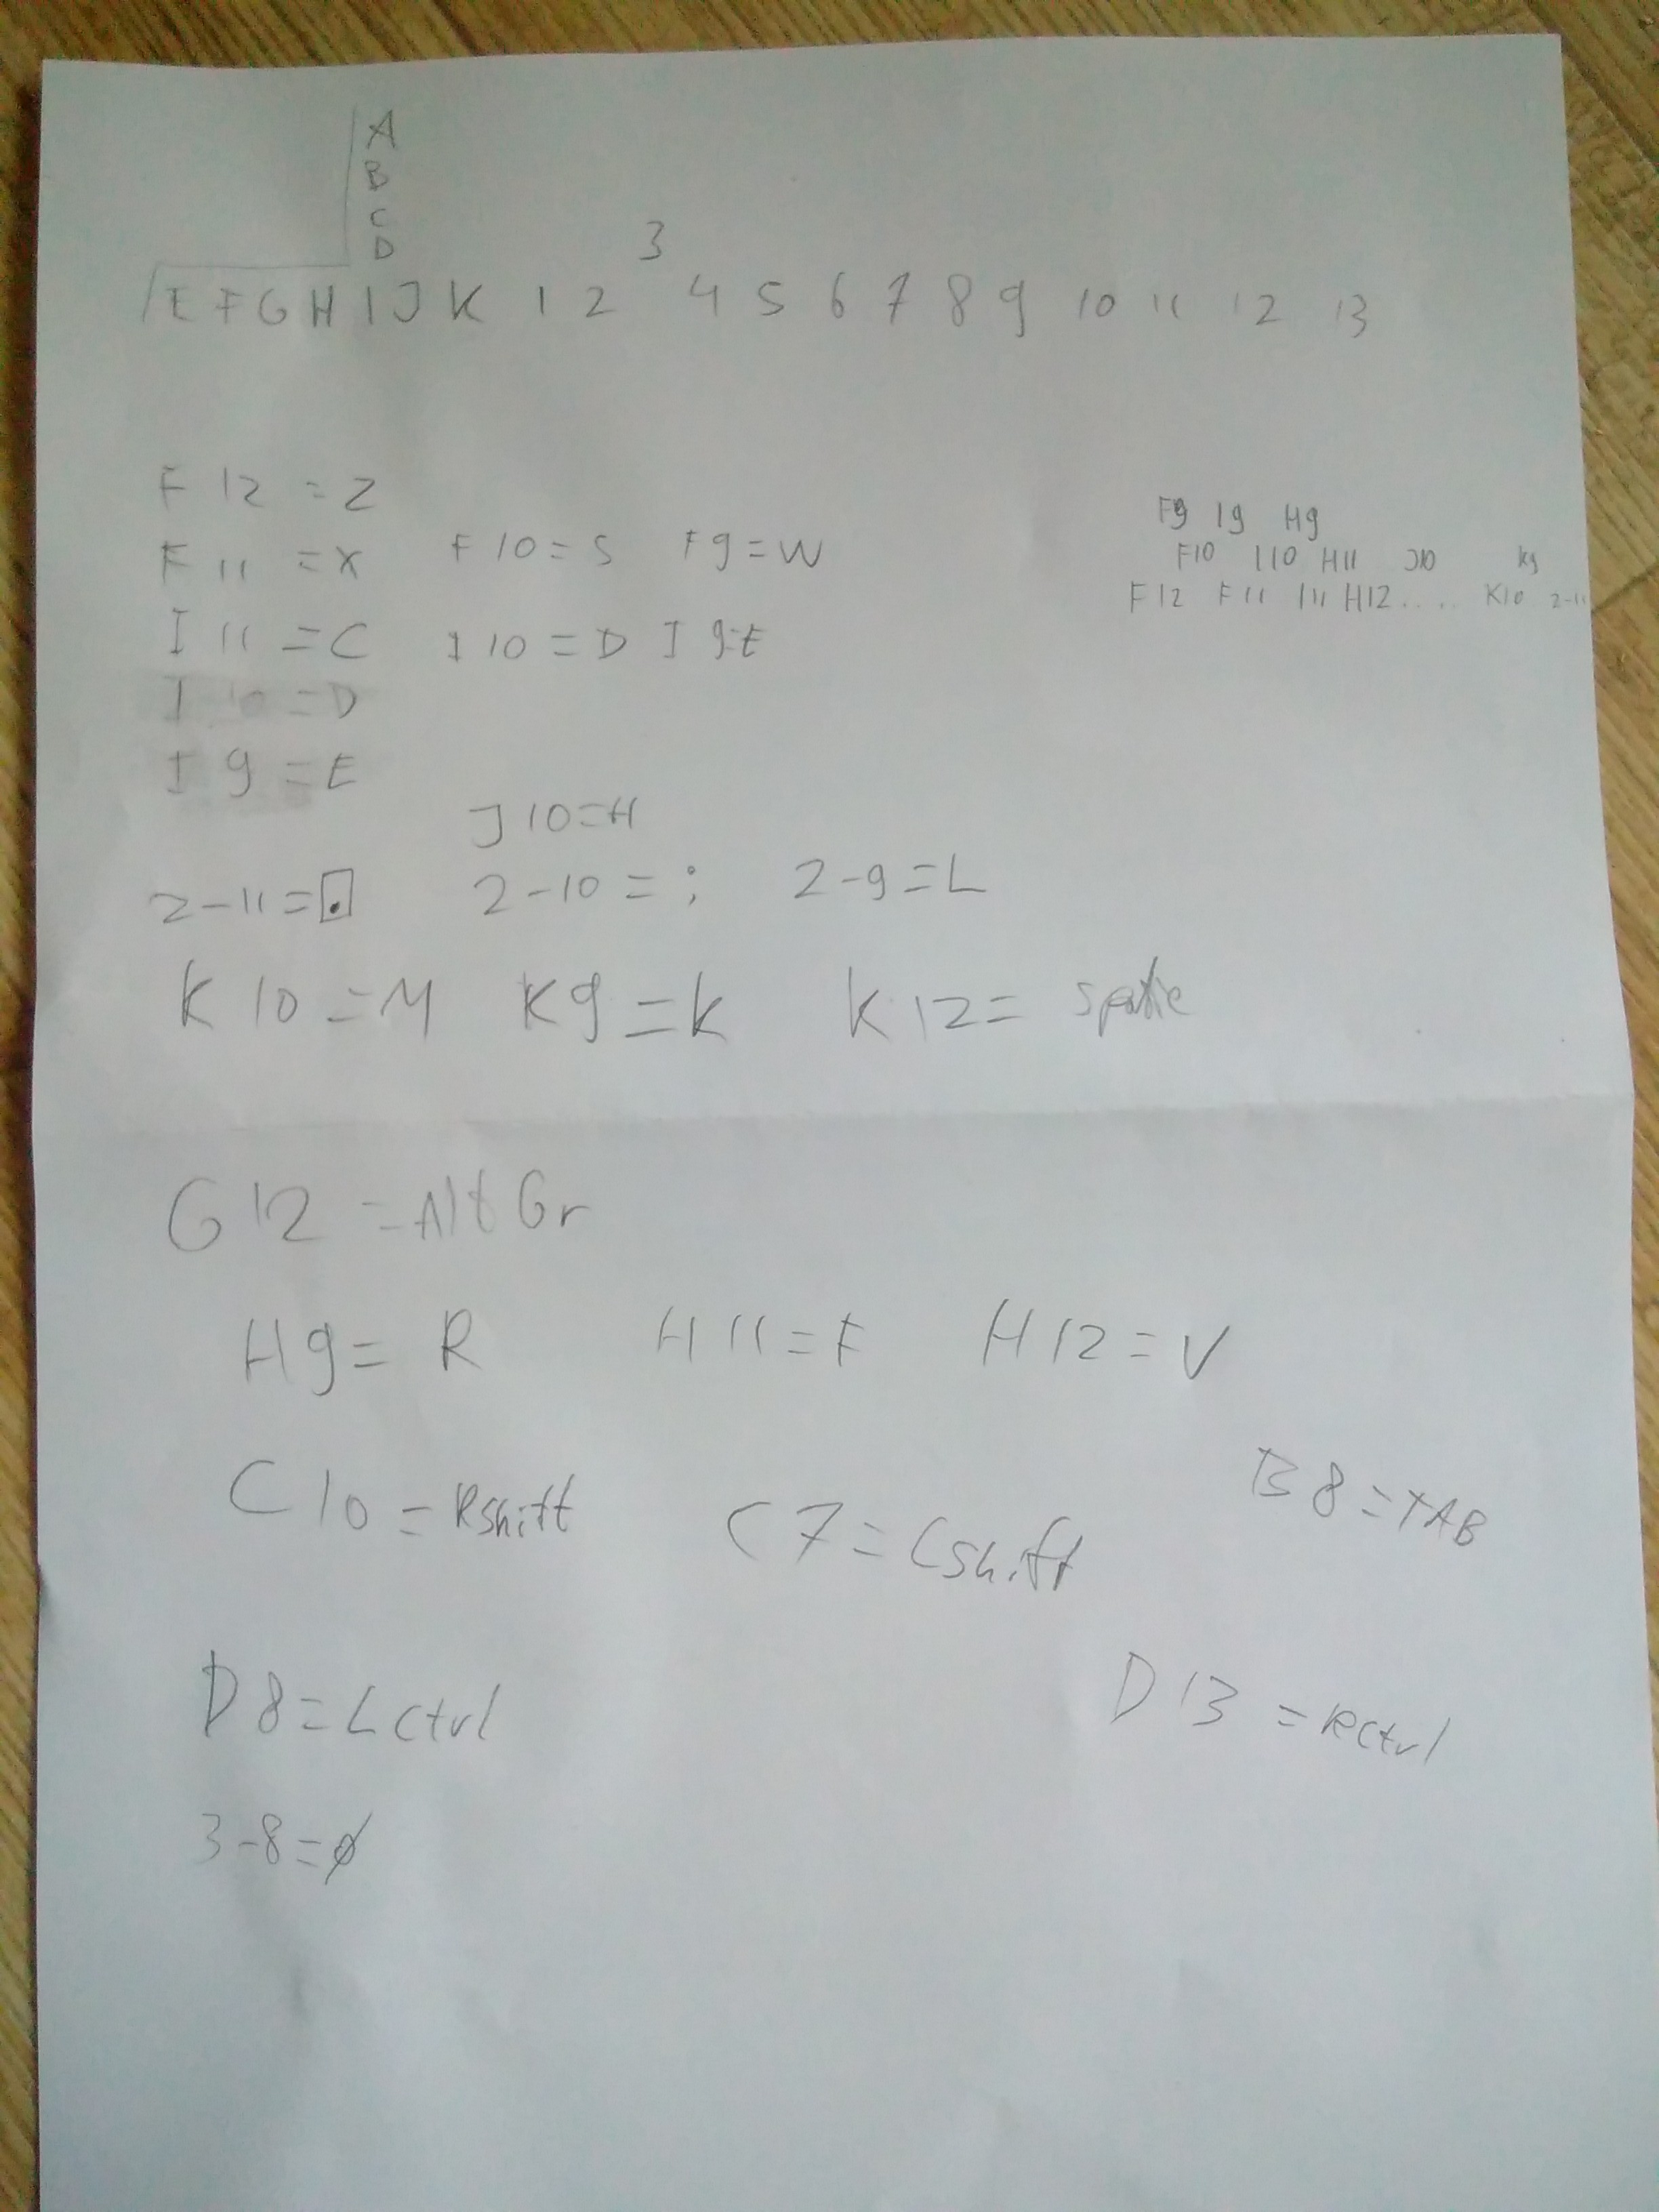 A
B
C
D
3
E F G H I J K 1 2 4 5 6 7 8 9 10 11 12 13
F 12 = Z
F9 I9 H9
F 11 = X F 10 = S F9 = W
F10 I10 H11 J10 K9
F12 F11 I11 H12.... K10 2-11
I 11 = C I 10 = D I 9=E
I 10 = D
I 9 = E
J 10 = H
2-11 = . 2-10 = ; 2-9 = L
K 10 = M K9 = K K 12 = spatie
G 12 = Alt Gr
H9 = R H 11 = F H 12 = V
C 10 = Rshift C7 = Cshift B8 = TAB
D8 = LCtrl D 13 = RCtrl
3-8=ø